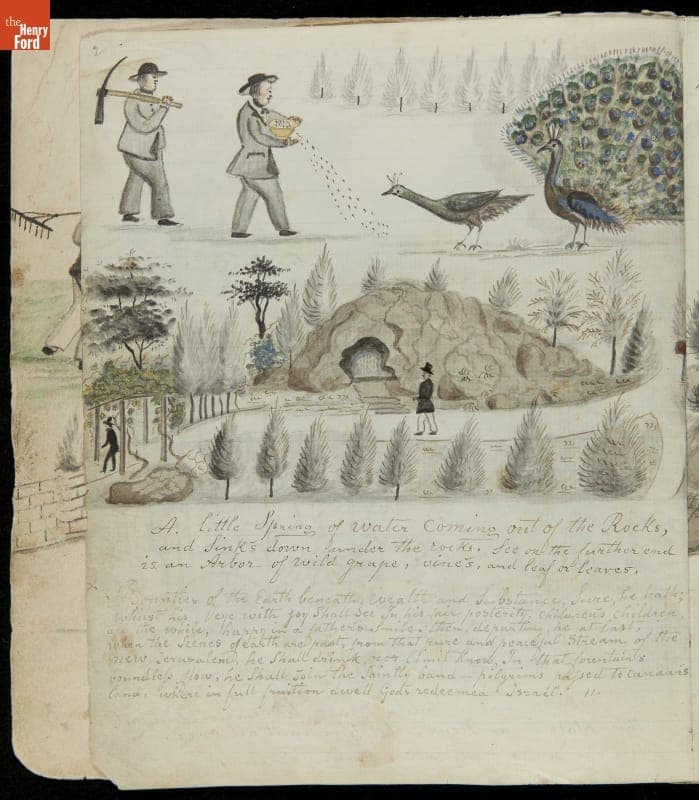 the
Henry
Ford
2
A. little Spring of water Coming out of the Rocks,
and Sink's down, under the rocks. See on the further end
is an Arbor of Wild grape, vine's, and leaf or leaves.
of the Earth beneath, Wealth and Substance, Sure, he hath;
Whilst his eye with joy Shall See in his fair posterity, children's children
the while, harry in a father's Smile: then, departing, he at last:
When the Scenes of earth are past, from that pure and peaceful Stream of the
New Jerusalem, he Shall drink, nor limit Know, In that fountain's
boundless flow, he Shall Join the Saintly band — pilgrims raised to Canaan's
land: Where in full fruition dwell God's redeemed Israel. 11.